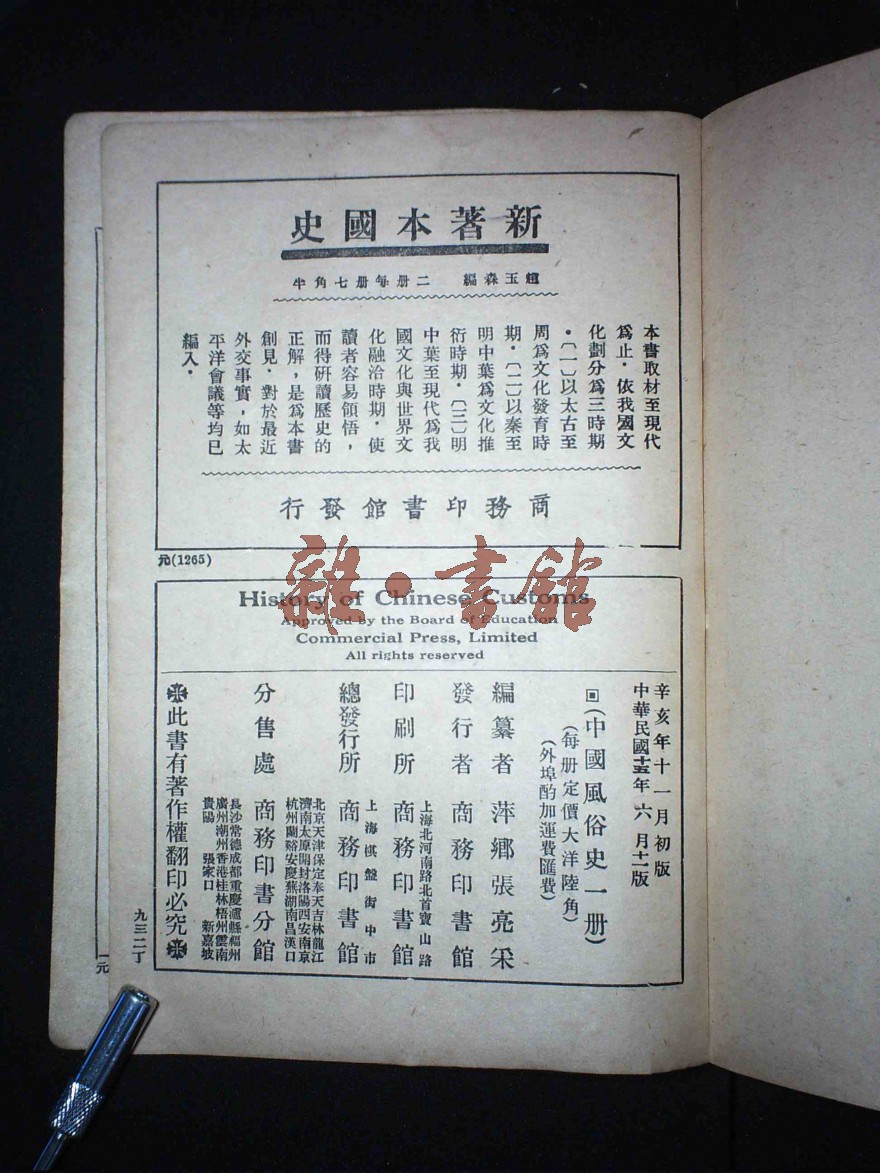 新著本國史
趙玉森編　二册每册七角半
本書取材至現代
爲止．依我國文
化劃分爲三時期
．（一）以太古至
周爲文化發育時
期．（二）以秦至
明中葉爲文化推
衍時期．（三）明
中葉至現代爲我
國文化與世界文
化融洽時期．使
讀者容易領悟，
而得研讀歷史的
正解，是爲本書
創見．對於最近
外交事實，如太
平洋會議等均已
編入．
商務印書館發行
元(1265)
雜·書館
History of Chinese Customs
Approved by the Board of Education
Commercial Press, Limited
All rights reserved
辛亥年十一月初版
中華民國十五年六月十一版
（中國風俗史一册）
（每册定價大洋陸角）
（外埠酌加運費匯費）
編纂者　萍鄉張亮采
發行者　商務印書館
上海北河南路北首寶山路
印刷所　商務印書館
上海棋盤街中市
總發行所　商務印書館
北京天津保定奉天吉林龍江
濟南太原開封洛陽西安南京
杭州蘭谿安慶蕪湖南昌漢口
分售處　商務印書分館
長沙常德成都重慶瀘縣福州
廣州潮州香港桂林梧州雲南
貴陽　張家口　新嘉坡
此書有著作權翻印必究
九三二丁
一元